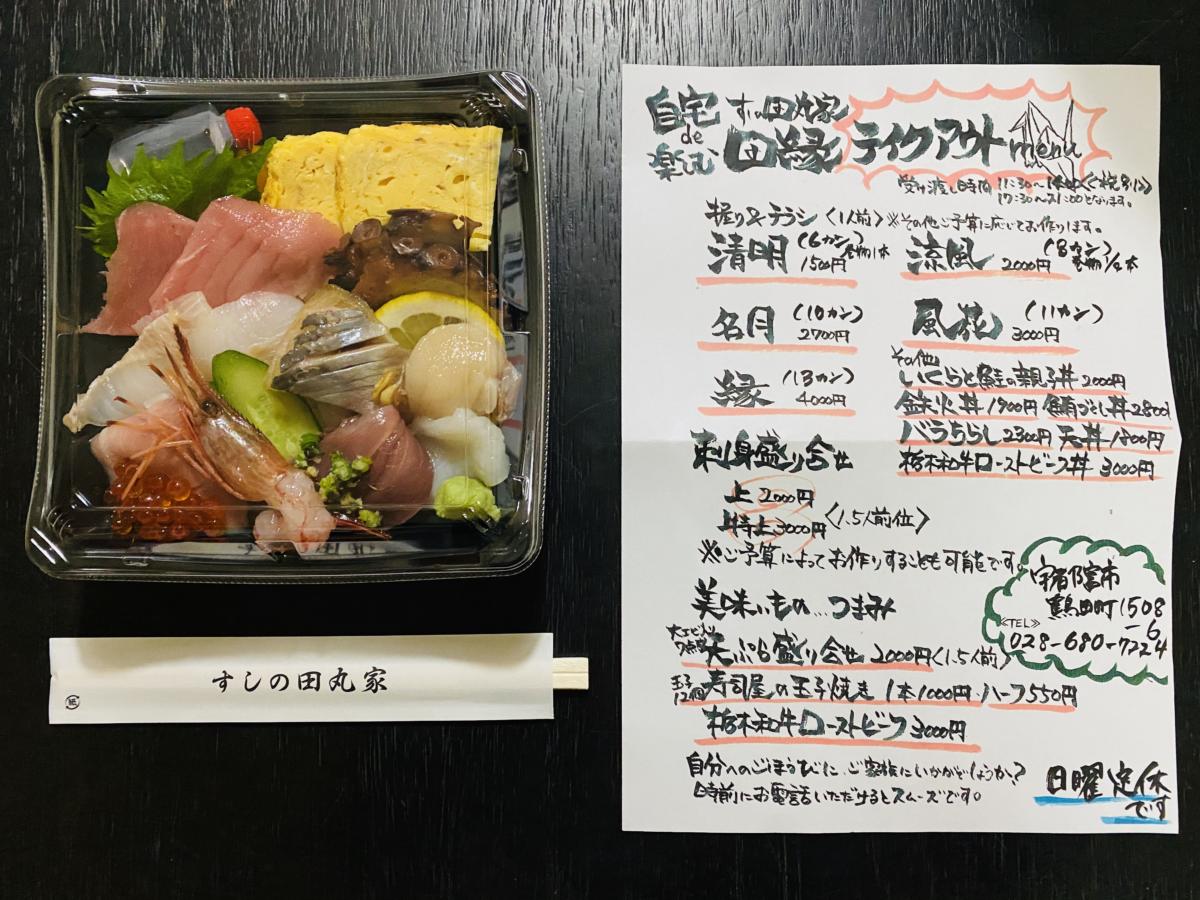 すしの田丸家
自宅de楽しむ
すしの田丸家
田縁 テイクアウト menu
受け渡し時間 11:30〜
17:30〜21:00となります。
握り&チラシ〈1人前〉※その他ご予算に応じてお作ります。
清明 (6カン) 巻物1本 1500円
涼風 (8カン) 巻物1/2本 2000円
名月 (10カン) 2700円
風花 (11カン) 3000円
縁 (13カン) 4000円
その他
いくらと鮭の親子丼 2000円
鉄火丼 1900円 鮪づくし丼 2800円
バラちらし 2300円 天丼 1800円
栃木和牛ローストビーフ丼 3000円
刺身盛り合せ
上 2000円
特上 3000円 〈1.5人前位〉
※ご予算によってお作りすることも可能です。
美味いもの…つまみ
天ぷら盛り合せ 2000円〈1.5人前〉
玉子12個 寿司屋の玉子焼き 1本1000円 ハーフ550円
栃木和牛ローストビーフ 3000円
宇都宮市
鶴田町1508
-6
《TEL》
028-680-7224
自分へのごほうびに、ご家族にいかがでしょうか?
時前にお電話いただけるとスムーズです。
日曜定休
です